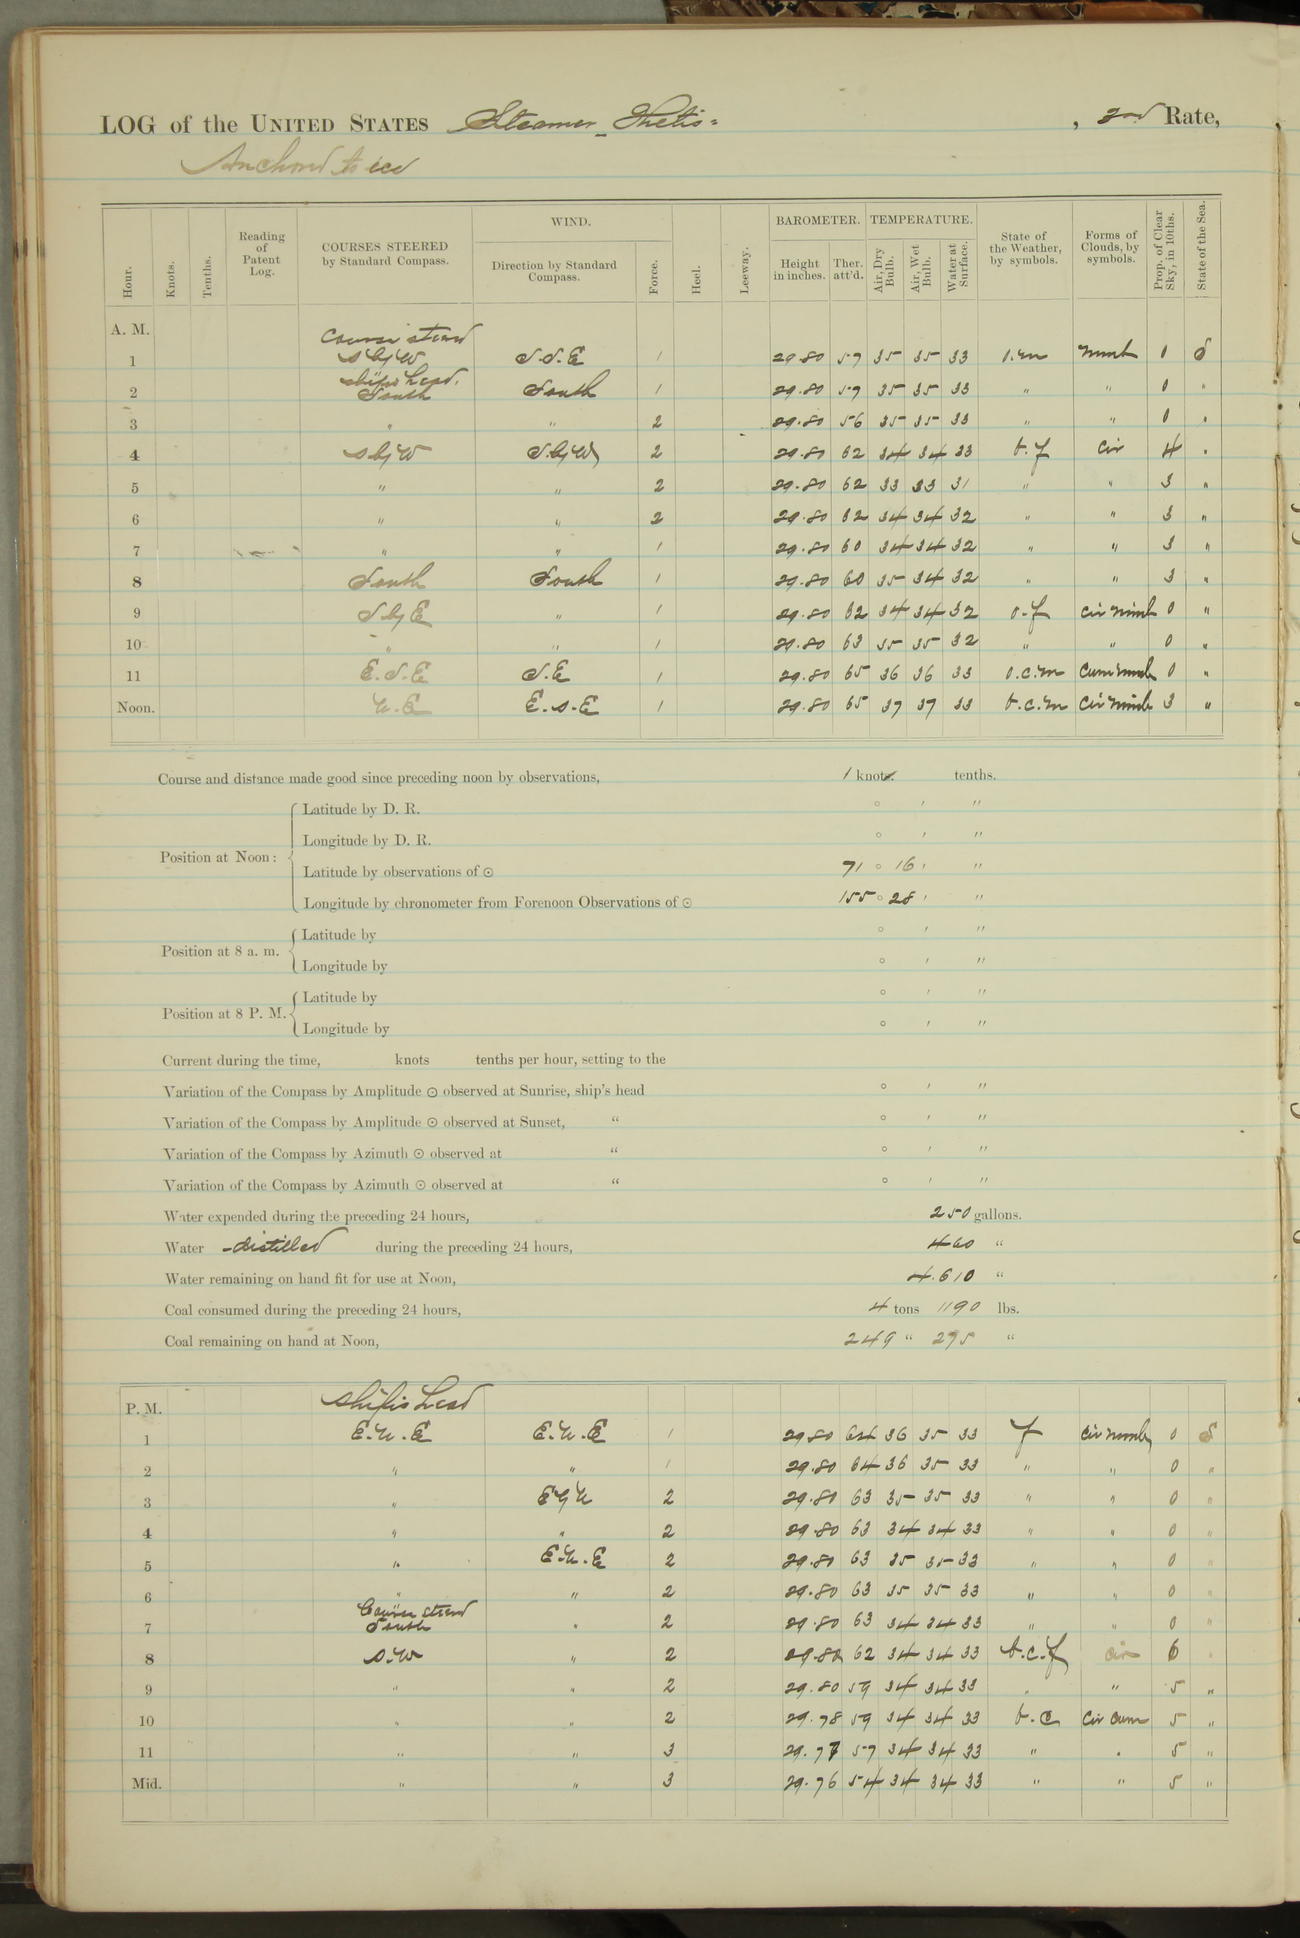 LOG of the UNITED STATES Steamer Thetis , 3rd Rate,
Anchored to ice
Hour. Knots. Tenths. Reading of Patent Log. COURSES STEERED by Standard Compass. WIND. Direction by Standard Compass. Force. Heel. Leeway. BAROMETER. Height in inches. Ther. att'd. TEMPERATURE. Air, Dry Bulb. Air, Wet Bulb. Water at Surface. State of the Weather, by symbols. Forms of Clouds, by symbols. Prop. of Clear Sky, in 10ths. State of the Sea.
A. M. Course steered
1 S by W S.S.E 1 29.80 57 35 35 33 o.m Nimb 0 S
ships head.
2 South South 1 29.80 57 35 35 33 " " 0 "
3 " " 2 29.80 56 35 35 33 " " 0 "
4 S by W S. by W 2 29.80 62 34 34 33 b.f Cir 4 "
5 " " 2 29.80 62 33 33 31 " " 3 "
6 " " 2 29.80 62 34 34 32 " " 3 "
7 " " 1 29.80 60 34 34 32 " " 3 "
8 South South 1 29.80 60 35 34 32 " " 3 "
9 S by E " 1 29.80 62 34 34 32 o.f Cir Nimb 0 "
10 " " 1 29.80 63 35 35 32 " " 0 "
11 E.S.E S.E 1 29.80 65 36 36 33 o.c.m Cum Nimb 0 "
Noon. N.E E.S.E 1 29.80 65 37 37 33 b.c.m Cir Nimb 3 "
Course and distance made good since preceding noon by observations, 1 knots. tenths.
Position at Noon: Latitude by D. R. ° ′ ″
Longitude by D. R. ° ′ ″
Latitude by observations of ⊙ 71 ° 16 ′ ″
Longitude by chronometer from Forenoon Observations of ⊙ 155 ° 28 ′ ″
Position at 8 a. m. Latitude by ° ′ ″
Longitude by ° ′ ″
Position at 8 P. M. Latitude by ° ′ ″
Longitude by ° ′ ″
Current during the time, knots tenths per hour, setting to the
Variation of the Compass by Amplitude ⊙ observed at Sunrise, ship's head ° ′ ″
Variation of the Compass by Amplitude ⊙ observed at Sunset, " ° ′ ″
Variation of the Compass by Azimuth ⊙ observed at " ° ′ ″
Variation of the Compass by Azimuth ⊙ observed at " ° ′ ″
Water expended during the preceding 24 hours, 250 gallons.
Water distilled during the preceding 24 hours, 460 "
Water remaining on hand fit for use at Noon, 4.610 "
Coal consumed during the preceding 24 hours, 4 tons 1190 lbs.
Coal remaining on hand at Noon, 249 " 295 "
P. M. Ship's head
1 E.N.E E.N.E 1 29.80 64 36 35 33 f Cir Nimb 0 S
2 " " 1 29.80 64 36 35 33 " " 0 "
3 " E by N 2 29.80 63 35 35 33 " " 0 "
4 " " 2 29.80 63 34 34 33 " " 0 "
5 " E.N.E 2 29.80 63 35 35 33 " " 0 "
6 " " 2 29.80 63 35 35 33 " " 0 "
Course steered
7 South " 2 29.80 63 34 34 33 " " 0 "
8 S.W " 2 29.80 62 34 34 33 b.c.f Cir 6 "
9 " " 2 29.80 59 34 34 33 " " 5 "
10 " " 2 29.78 59 34 34 33 b.c Cir Cum 5 "
11 " " 3 29.77 57 34 34 33 " " 5 "
Mid. " " 3 29.76 54 34 34 33 " " 5 "